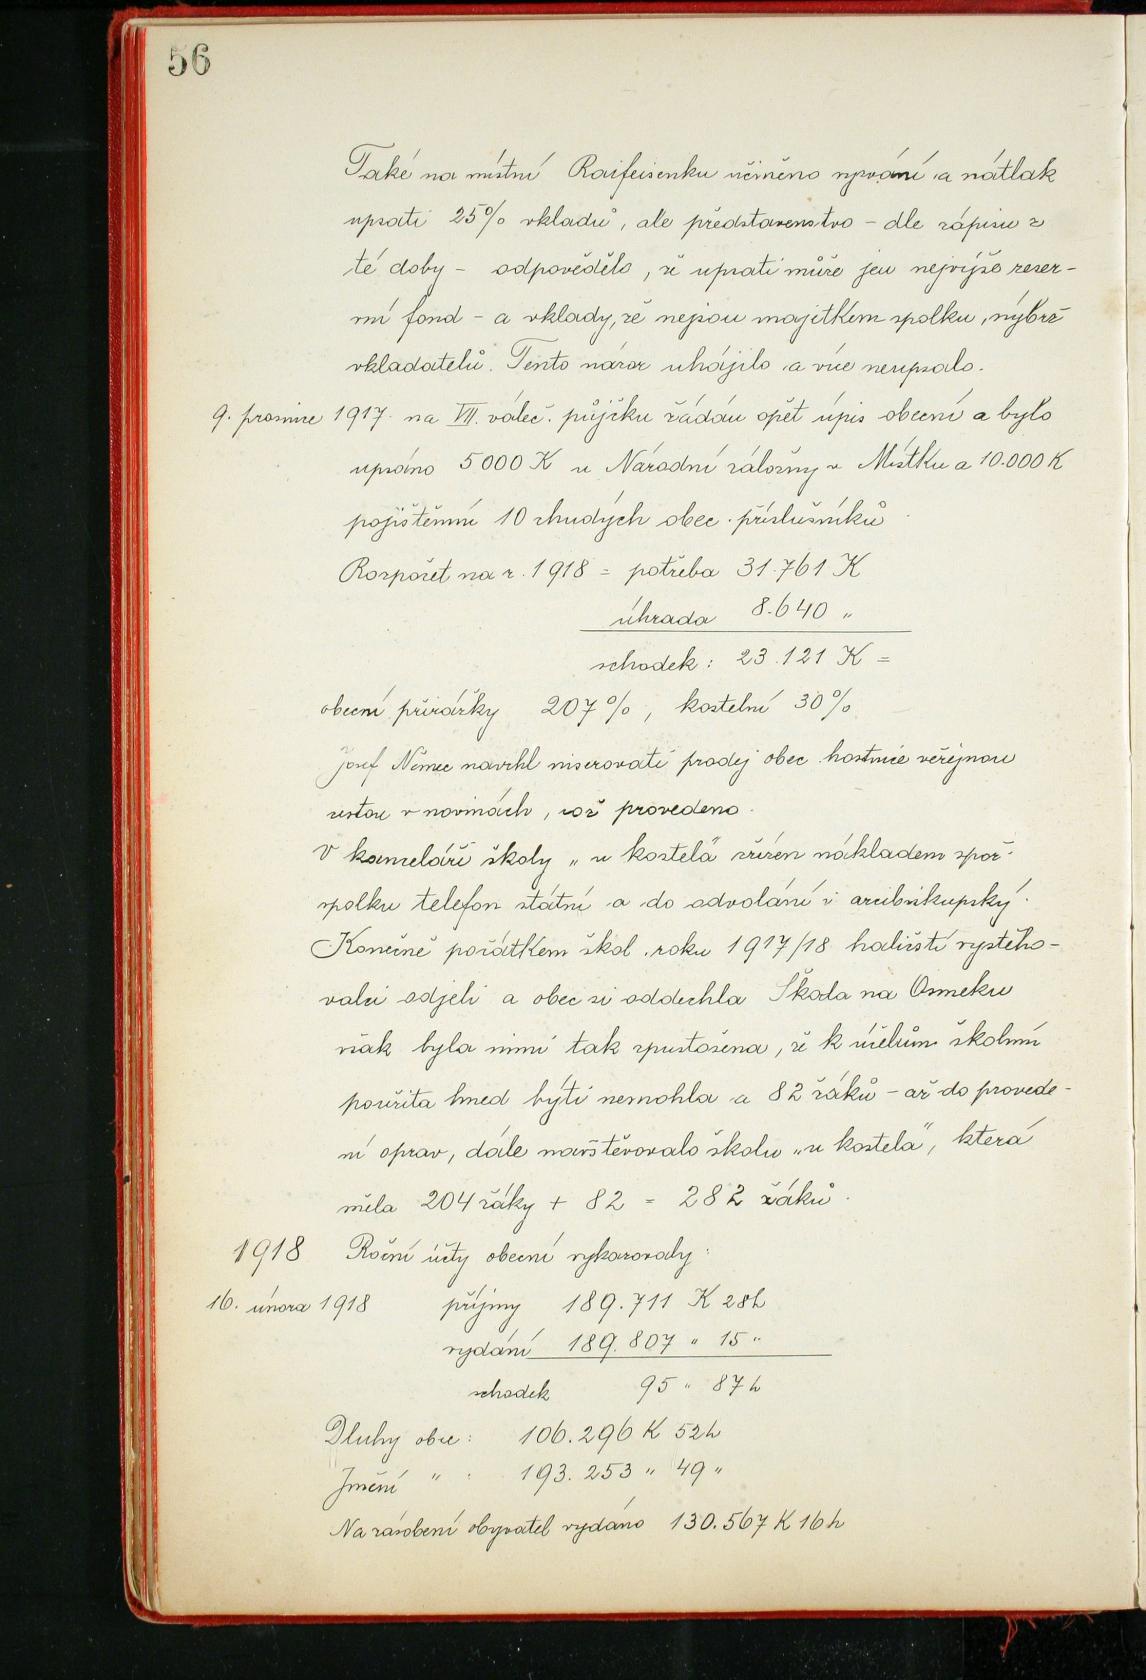 56
Také na místní Raifeisenku učiněno vyzvání a nátlak
upsati 25% vkladů, ale představenstvo – dle zápisu z
té doby – odpovědělo, že upsati může jen nejvýše reser-
vní fond – a vklady, že nejsou majetkem spolku, nýbrž
vkladatelů. Tento názor uhájilo a více neupsalo.
9. prosince 1917 na VII. váleč. půjčku žádán opět úpis obecní a bylo
upsáno 5000 K u Národní záložny v Místku a 10.000 K
pojištěním 10 chudých obec. příslušníků
Rozpočet na r. 1918 = potřeba 31.761 K
úhrada 8.640 "
schodek: 23.121 K =
obecní přirážky 207%, kostelní 30%
Josef Němec navrhl inserovati prodej obec. hostince veřejnou
cestou v novinách, což provedeno.
V kanceláři školy „u kostela" zřízen nákladem spoř.
spolku telefon státní a do odvolání i arcibiskupský.
Konečně počátkem škol. roku 1917/18 haličští vystěho-
valci odjeli a obec si oddechla Škola na Osmeku
však byla nimi tak zpustošena, že k účelům školním
použita hned býti nemohla a 82 žáků – až do provede-
ní oprav, dále navštěvovalo školu „u kostela", která
měla 204 žáky + 82 = 282 žáků.
1918 Roční účty obecní vykazovaly:
16. února 1918 příjmy 189.711 K 28 h
vydání 189.807 " 15 "
schodek 95 " 87 h
Dluhy obce: 106.296 K 52 h
Jmění " : 193.253 " 49 "
Na zásobení obyvatel vydáno 130.567 K 16 h